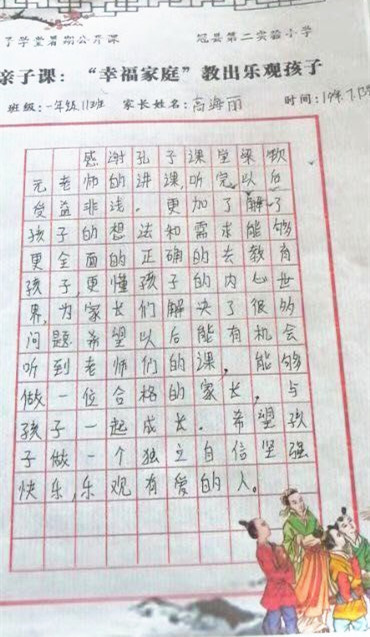 子学堂暑期公开课 冠县第二实验小学
亲子课：“幸福家庭”教出乐观孩子
班级：一年级11班 家长姓名：高海丽 时间：19年.7.13
感谢孔子课堂梁
元老师的讲课,听完以后
受益非浅。更加了解了
孩子的想法和需求能够
更全面的正确的去教育
孩子,更懂孩子的内心世
界,为家长们解决了很多
问题.希望以后能有机会
听到老师们的课,能够
做一位合格的家长,与
孩子一起成长.希望孩
子做一个独立自信坚强
快乐,乐观有爱的人。